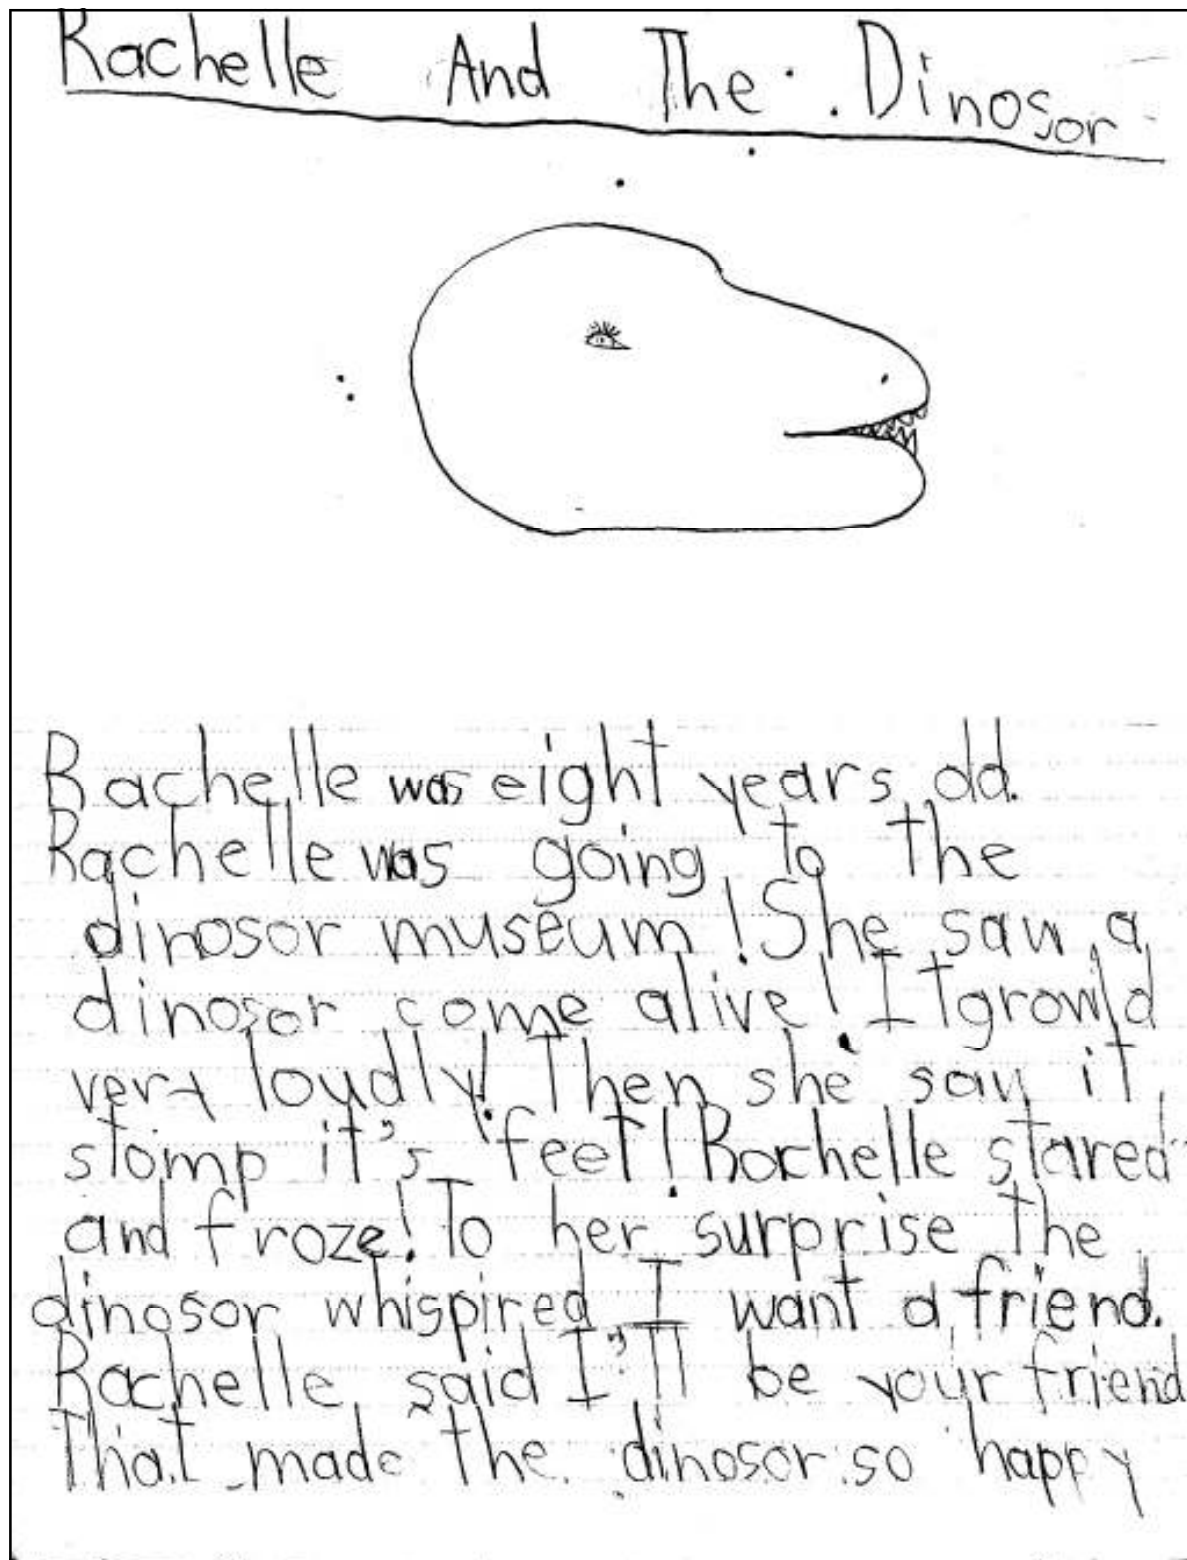 Rachelle And The Dinosor
Rachelle was eight years old.
Rachelle was going to the
dinosor museum! She saw a
dinosor come alive! It growld
very loudly! Then she saw it
stomp it's feet! Rachelle stared
and froze! To her surprise the
dinosor whispired I want a friend.
Rachelle said I'll be your friend
That made the dinosor so happy